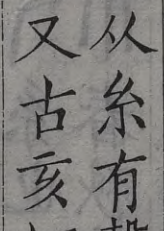 从糸有
又古亥